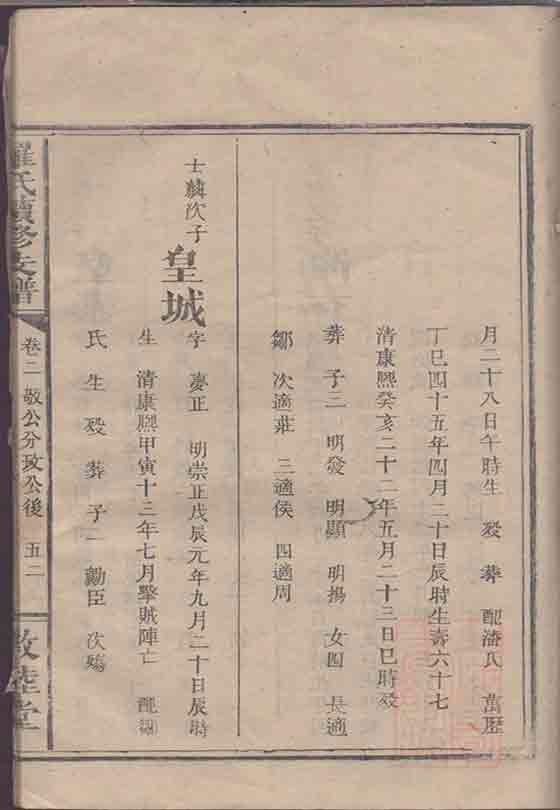 月二十八日午時生 歿 葬 配潘氏 萬歷
丁巳四十五年四月二十日辰時生壽六十七
清康熙癸亥二十二年五月二十三日巳時歿
葬 子三 明發 明顯 明揚 女四 長適
鄒 次適莊 三適侯 四適周
士麟次子 皇城
字 慶正 明崇正戊辰元年九月二十日辰時
生 清康熙甲寅十三年七月擊賊陣亡 配
氏 生 歿 葬 子一 勳臣 次殤
羅氏續修支譜
卷二 敬公分攻公後 五二
敦睦堂